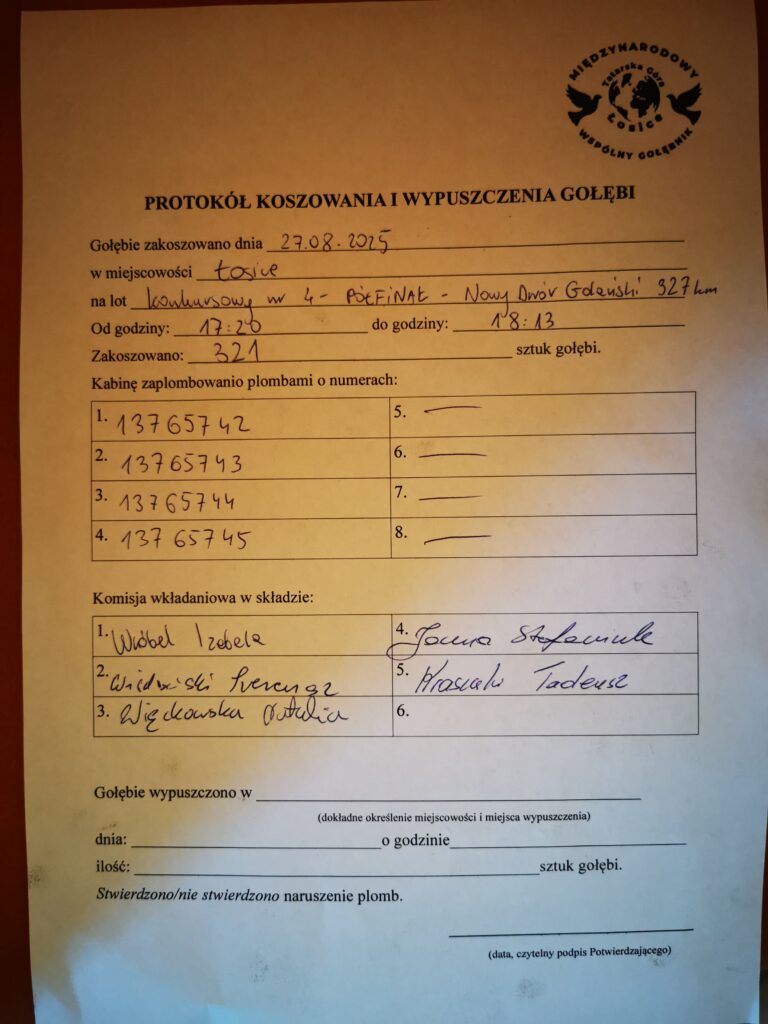 MIĘDZYNARODOWY
Tatarska Góra
Łosice
WSPÓLNY GOŁĘBNIK
PROTOKÓŁ KOSZOWANIA I WYPUSZCZENIA GOŁĘBI
Gołębie zakoszowano dnia 27.08.2025
w miejscowości Łosice
na lot konkursowy nr 4 - PÓŁFINAŁ - Nowy Dwór Gdański 327 km
Od godziny: 17:20 do godziny: 18:13
Zakoszowano: 321 sztuk gołębi.
Kabinę zaplombowanio plombami o numerach:
1. 13765742 5. —
2. 13765743 6. —
3. 13765744 7. —
4. 13765745 8. —
Komisja wkładaniowa w składzie:
1. Wróbel Izabela 4. Janina Stefaniuk
2. 5. Tadeusz
3. Więckowska Natalia 6.
Gołębie wypuszczono w
(dokładne określenie miejscowości i miejsca wypuszczenia)
dnia: o godzinie
ilość: sztuk gołębi.
Stwierdzono/nie stwierdzono naruszenie plomb.
(data, czytelny podpis Potwierdzającego)